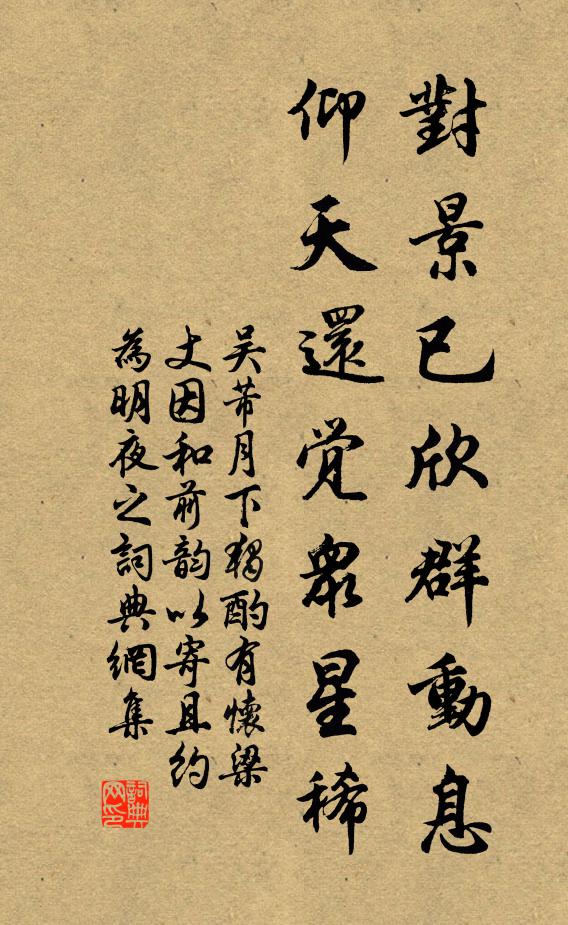 對景已欣群動息
仰天還覚衆星稀
吴芾月下独酌有懷梁
丈因和前韵以寄且约
為明夜之詞典網集
詞典
网印